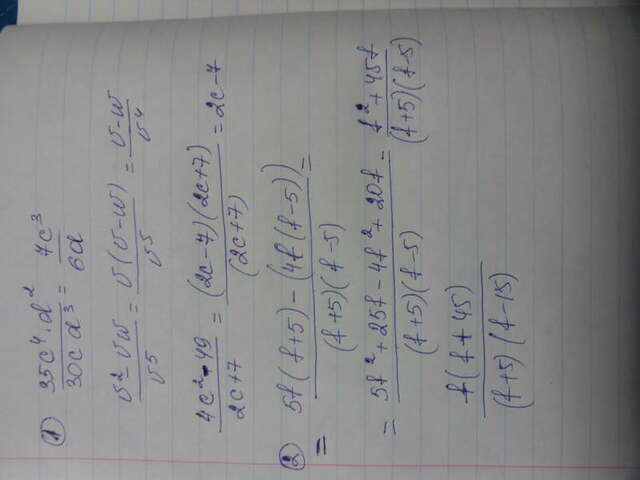 ① 35c⁴·d² / 30cd³ = 7c³ / 6d
v² - vw / v⁵ = v(v-w) / v⁵ = v-w / v⁴
4c² - 49 / 2c+7 = (2c-7)(2c+7) / (2c+7) = 2c-7
② = 5f(f+5) - (4f(f-5)) / (f+5)(f-5) =
= 5f² + 25f - 4f² + 20f / (f+5)(f-5) - f² + 45f / (f+5)(f-5)
f(f+45) / (f+5)(f-15)